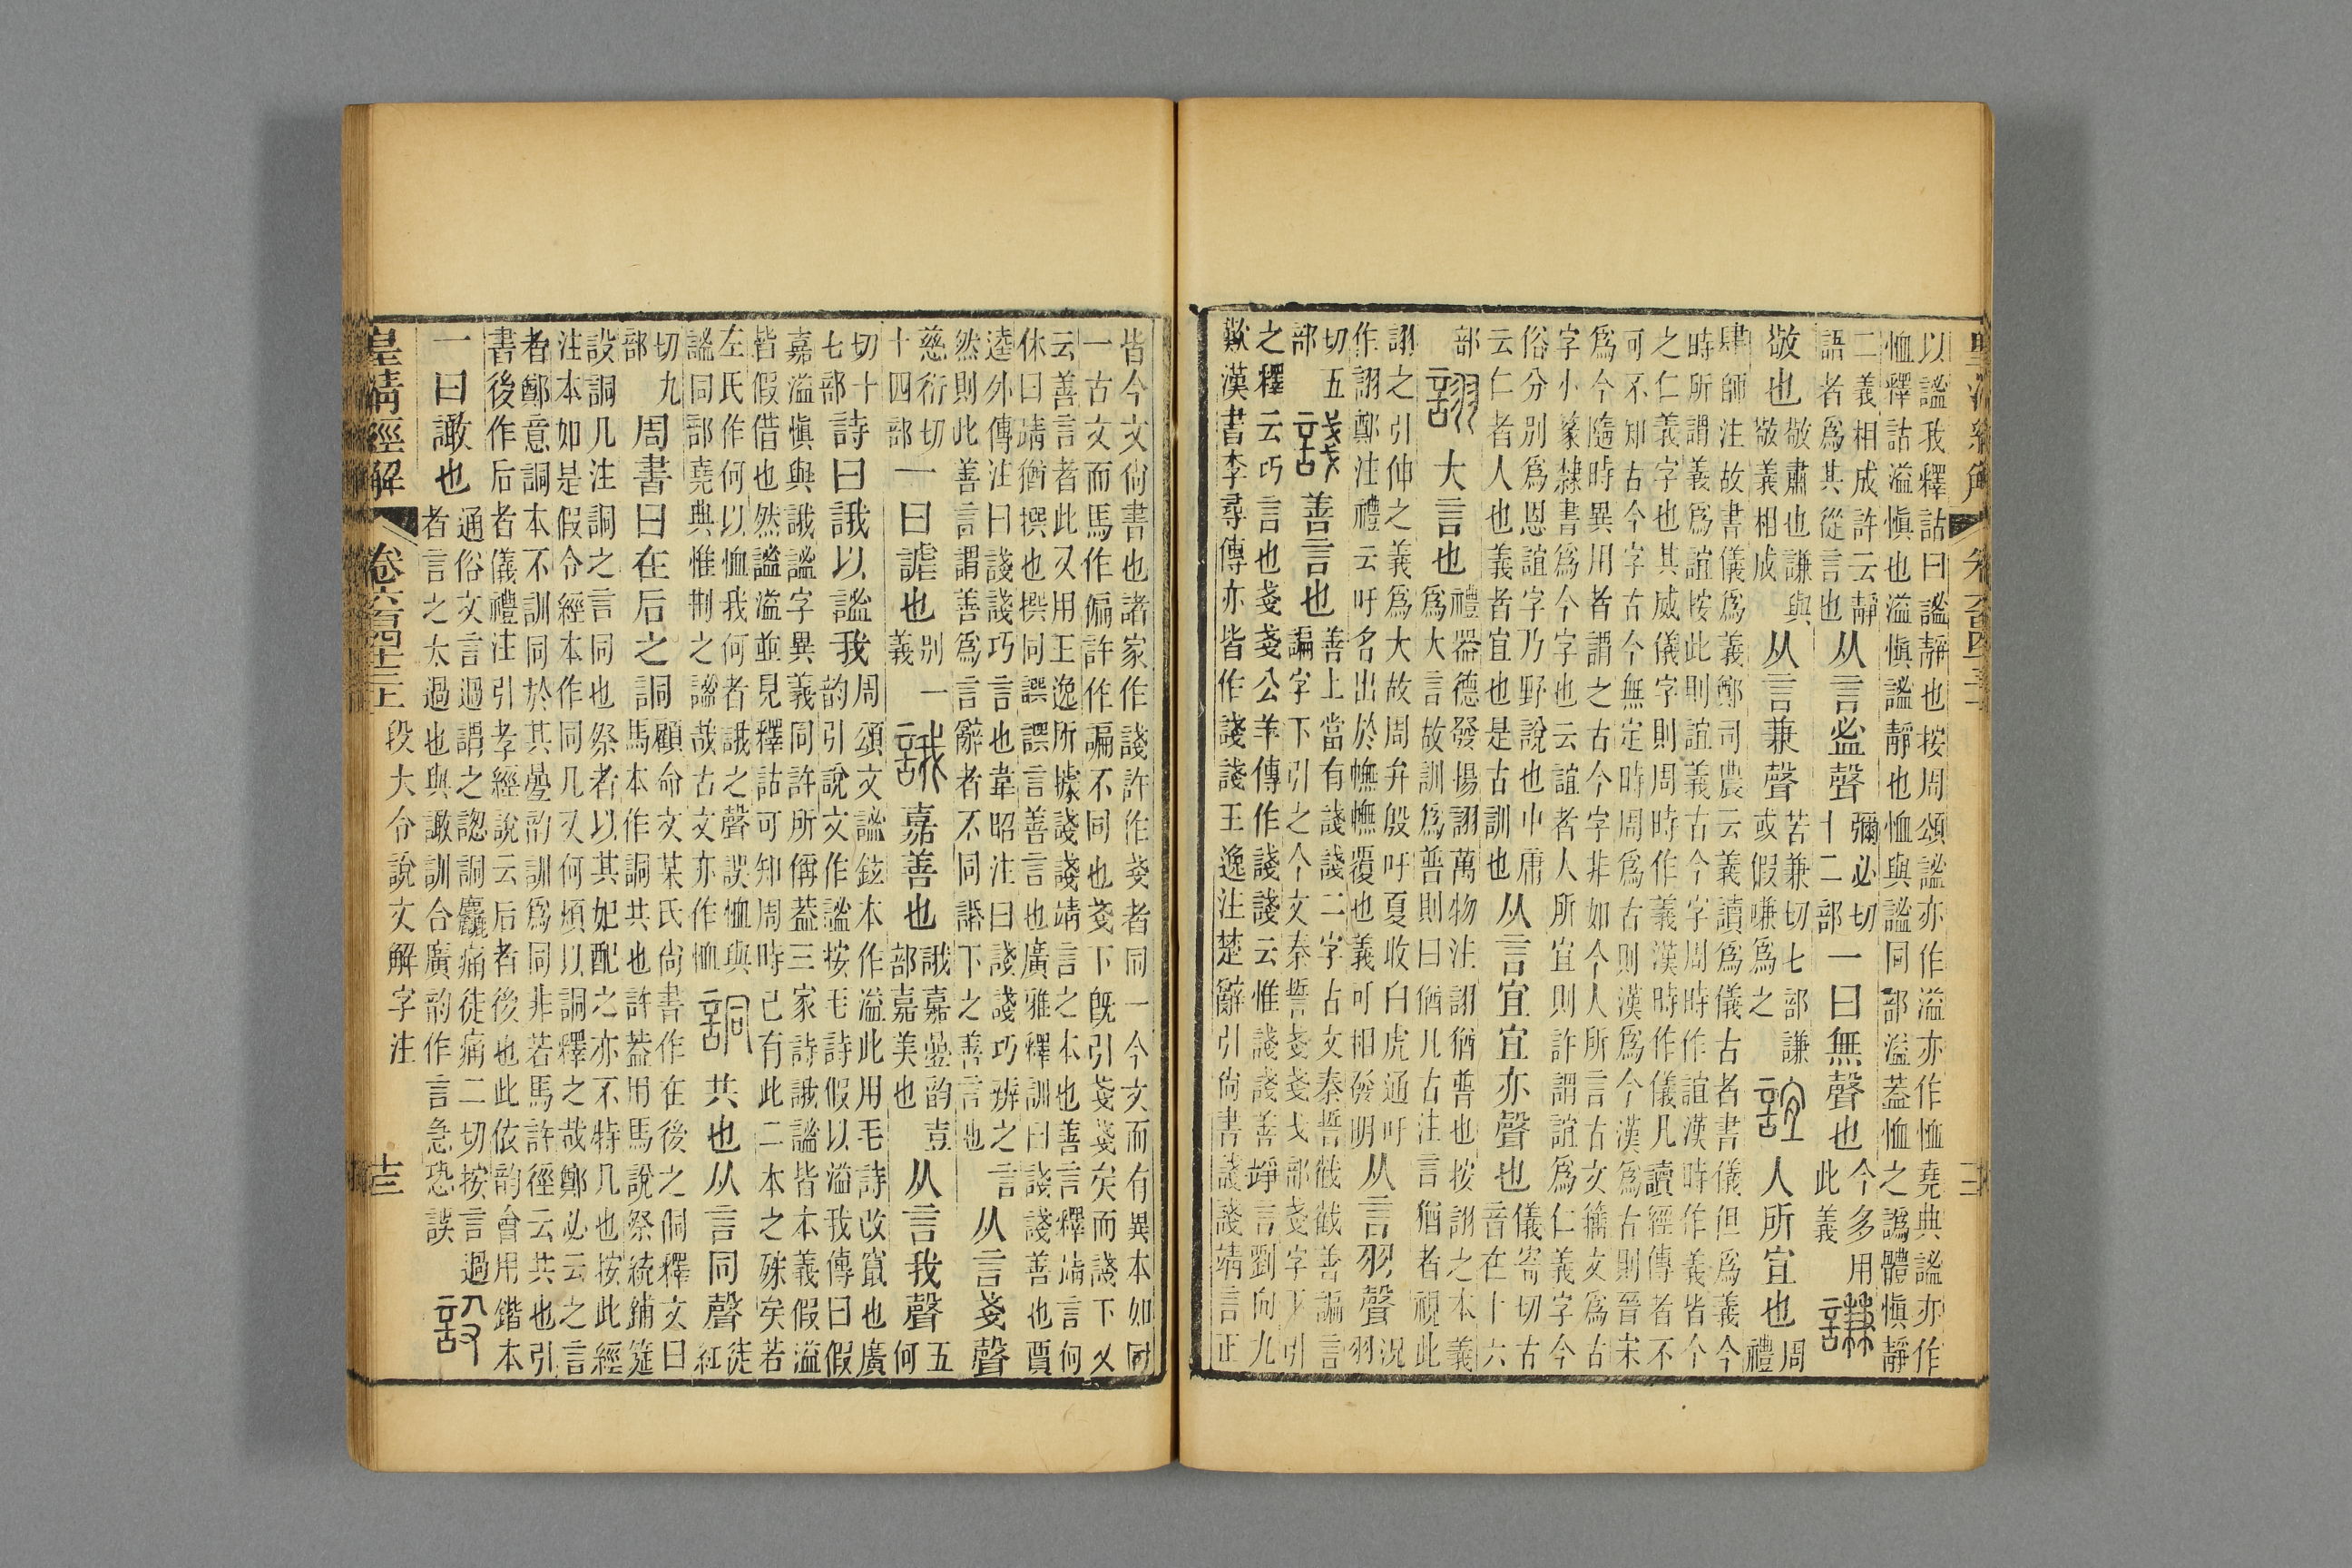 以謐我釋詁曰謐靜也按周頌謐亦作溢亦作恤堯典謐亦作
恤釋詁溢慎也溢慎謐靜也恤與謐同部溢葢恤之譌體慎靜
二義相成許云靜
語者爲其從言也
从言䀣聲
彌必切
十二部
一曰無聲也
今多用
此義
謙
敬也
敬肅也謙與
敬義相成
从言兼聲
苦兼切七部謙
或假嗛爲之
誼
人所宜也
周
禮
肆師注故書儀爲義鄭司農云義讀爲儀古者書儀但爲義今
時所謂義爲誼按此則誼義古今字周時作誼漢時作義皆今
之仁義字也其威儀字則周時作義漢時作儀凡讀經傳者不
可不知古今字古今無定時周爲古則漢爲今漢爲古則晉宋
爲今隨時異用者謂之古今字非如今人所言古文籒文爲古
字小篆隸書爲今字也云誼者人所宜則許謂誼爲仁義字今
俗分別爲恩誼字乃野說也中庸
云仁者人也義者宜也是古訓也
从言宜宜亦聲也
儀寄切古
音在十六
部
詡
大言也
禮器德發揚詡萬物注詡猶普也按詡之本義
爲大言故訓爲普則曰猶凡古注言猶者視此
詡之引伸之義爲大故周弁殷吁夏收白虎通吁
作詡鄭注禮云吁名出於幠幠覆也義可相發明
从言羽聲
況
羽
切五
部
諓
善言也
善上當有諓諓二字古文秦誓截截善諞言
諞字下引之今文秦誓戔戔戈部戔字下引
之釋云巧言也戔戔公羊傳作諓諓云惟諓諓善竫言劉向九
歎漢書李尋傳亦皆作諓諓王逸注楚辭引尚書諓諓靖言正
皆今文尚書也諸家作諓許作戔者同一今文而有異本如同
一古文而馬作偏許作諞不同也戔下旣引戔戔矣而諓下又
云善言者此又用王逸所據諓諓靖言之本也善言釋靖言何
休曰靖猶撰也撰同譔譔言善言也廣雅釋訓曰諓諓善也賈
逵外傳注曰諓諓巧言也韋昭注曰諓諓巧辨之言
然則此善言謂善爲言辭者不同譱下之善言也
从言戔聲
慈衍切
十四部
一曰謔也
别一
義
誐
嘉善也
誐嘉曡韵壴
部嘉美也
从言我聲
五
何
切十
七部
詩曰誐以謐我
周頌文謐鉉本作溢此用毛詩改竄也廣
韵引說文作謐按毛詩假以溢我傳曰假
嘉溢慎與誐謐字異義同許所偁葢三家詩誐謐皆本義假溢
皆假借也然謐溢並見釋詁可知周時已有此二本之殊矣若
左氏作何以恤我何者誐之聲誤恤與
謐同部堯典惟刑之謐哉古文亦作恤
詷
共也从言同聲
徒
紅
切九
部
周書曰在后之詷
顧命文某氏尚書作在後之侗釋文曰
馬本作詷共也許葢用馬說祭統鋪筵
設詷几注詷之言同也祭者以其妃配之亦不特几也按此經
注本如是假令經本作同几又何煩以詷釋之哉鄭必云之言
者鄭意詷本不訓同於其曡韵訓爲同非若馬許徑云共也引
書後作后者儀禮注引孝經說云后者後也此依韵會用鍇本
一曰譀也
通俗文言過謂之謥詷麤痛徒痛二切按言過
者言之太過也與譀訓合廣韵作言急恐誤
設
皇清經解 卷六百四十三上 段大令說文解字注 十三